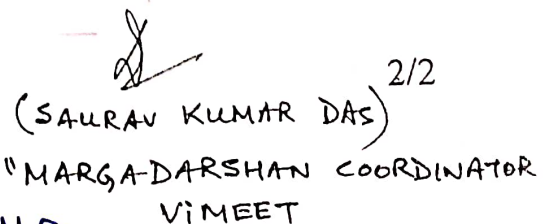 (SAURAV KUMAR DAS) 2/2
"MARGA-DARSHAN COORDINATOR
VIMEET